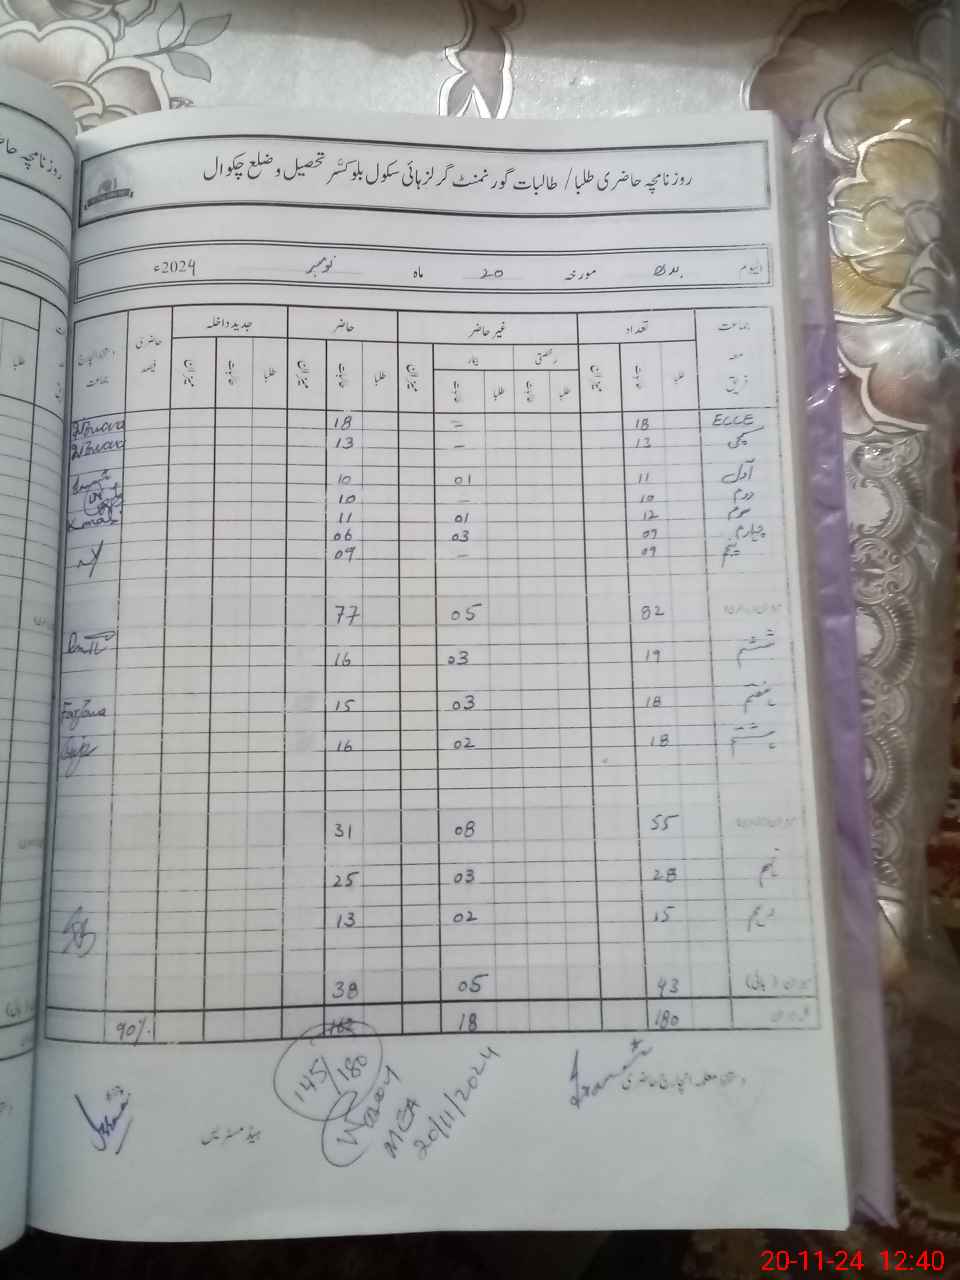 روزنامچہ حاضری طلبا / طالبات گورنمنٹ گرلز ہائی سکول بلوکسَّر تحصیل و ضلع چکوال
الیوم بدھ مورخہ 20 ماہ نومبر 2024ء
جماعت معہ فریق تعداد غیر حاضر حاضر جدید داخلہ حاضری فیصد دستخط انچارج جماعت
رخصتی بیمار
طلبا طالبات میزان طلبا طلبا طالبات میزان طلبا طالبات میزان طلبا طالبات میزان
ECCE 18 – 18
پکی 13 – 13
اول 11 01 10
دوم 10 – 10
سوم 12 01 11
چہارم 09 03 06
پنجم 09 – 09
82 05 77
ششم 19 03 16
ہفتم 18 03 15 Farzana
ہشتم 18 02 16
55 08 31
نہم 28 03 25
دہم 15 02 13
میزان (ہائی) 43 05 38
کل میزان 180 18 162 90%
دستخط معلمہ انچارج حاضری
145/180
ہیڈ مسٹریس
MEA
20/11/2024
20-11-24 12:40